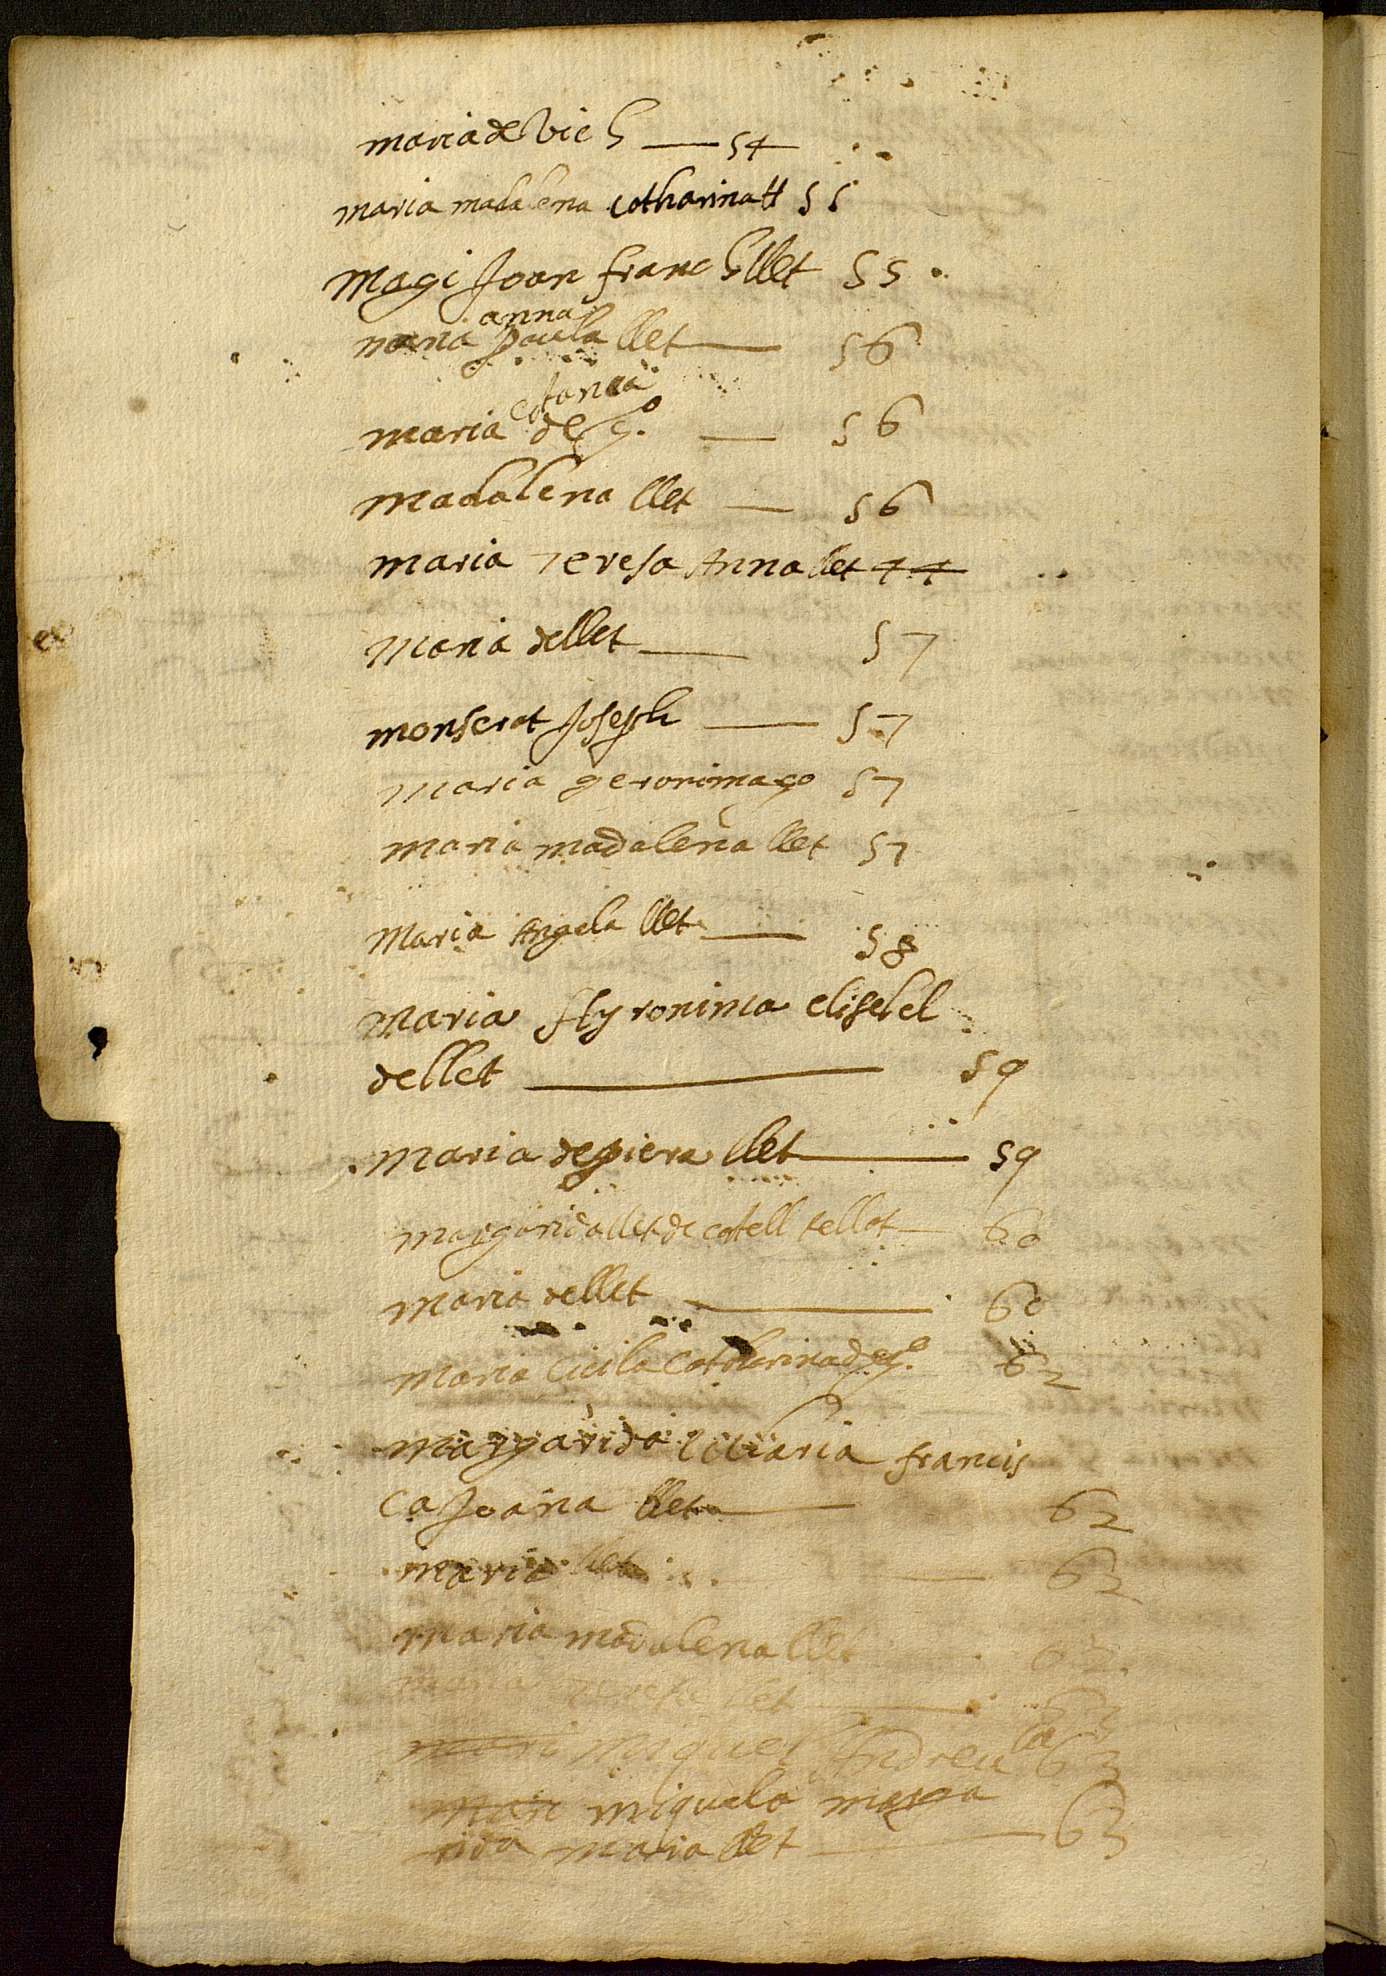 maria de Vich — 54
maria madalena Catharina tt 55
Magi Joan franch llet 55
anna
maria paula llet — 56
maria de g.º — 56
madalena llet — 56
maria Teresa Anna llet 44
Maria dellet — 57
monserat Joseph — 57
Maria geronima go 57
maria madalena llet 57
Maria Angela llet — 58
Maria Hyronima elisebel
dellet — 59
maria de piera llet — 59
margarida llet de catell 60
maria dellet — 60
maria Cicila Catherina de g.º 62
margarida maria francis
ca Joana llet — 62
maria llet — 62
maria madalena llet 62
maria llet — 63
mari Miquel Andreu 63
Mari miquela marga
rida maria llet — 63